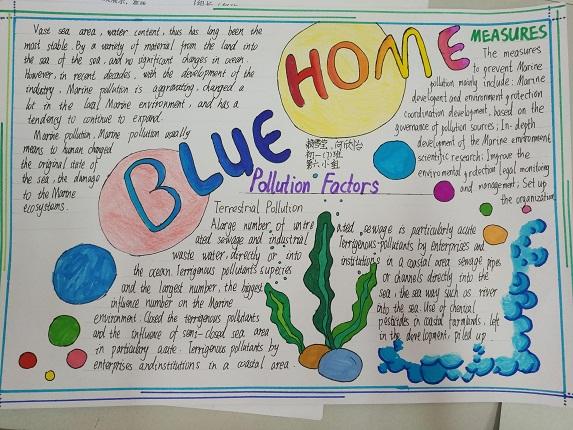 Vast sea area, water content, thus has long been the
most stable. By a variety of material from the land into
the sea of the sea, and no significant changes in ocean.
However, in recent decades, with the development of the
industry, Marine pollution is aggravating, changed a
lot in the local Marine environment, and has a
tendency to continue to expand.
Marine pollution, Marine pollution usually
means to human changed
the original state of
the sea, the damage
to the Marine
ecosystems.
BLUE HOME
初一(7)班
第六小组
MEASURES
The measures
to prevent Marine
pollution mainly include: Marine
development and environment protection
coordination development, based on the
governance of pollution sources; In-depth
development of the Marine environment
scientific research; Improve the
environmental protection legal monitoring
and management; Set up
the organization
Pollution Factors
Terrestrial Pollution
A large number of untre
ated sewage and industrial
waste water directly or into
the ocean. Terrigenous pollutants supecies
and the largest number, the biggest
influence number on the Marine
environment. Closed the terrigenous pollutants
and the influence of semi-closed sea area
in particularly acute. Terrigenous pollutants by
enterprises and institutions in a coastal area.
ated sewage is particularly acute
Terrigenous pollutants by enterprises and
institutions in a coastal area sewage pipes
or channels directly into the
sea, the sea way such as river
into the sea. Use of chemical
pesticides in coastal farmlands, left
in the development, piled up